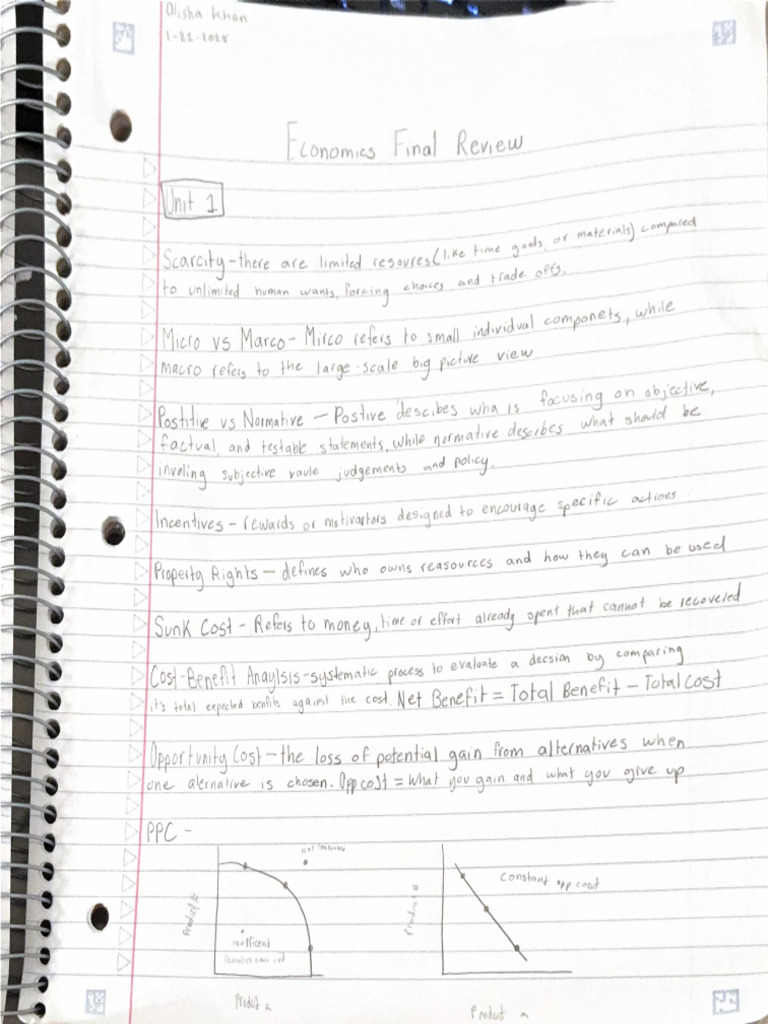 Alisha Khan
1-22-2025
Economics Final Review
Unit 1
Scarcity - there are limited resoures (like time goods, or materials) compared
to unlimited human wants, forcing choices and trade offs.
Micro vs Marco - Mirco refers to small individual componets, while
macro refers to the large-scale big picture view
Postitive vs Normative - Postive descibes wha is focusing on objective,
factual, and testable statements, while normative describes what should be
involing subjective vaule judgements and policy.
Incentives - rewards or motivators designed to encourage specific actions
Property Rights - defines who owns reasources and how they can be used
Sunk Cost - Refers to money, time or effort already spent that cannot be recovered
Cost-Benefit Anaylsis - systematic process to evaluate a decsion by comparing
it's total expected benfits against the cost. Net Benefit = Total Benefit - Total Cost
Opportunity Cost - the loss of potential gain from alternatives when
one alernative is chosen. Opp cost = what you gain and what you give up
PPC -
Product B
inefficent
Produt a
Product B
Constant opp cost
Produt a